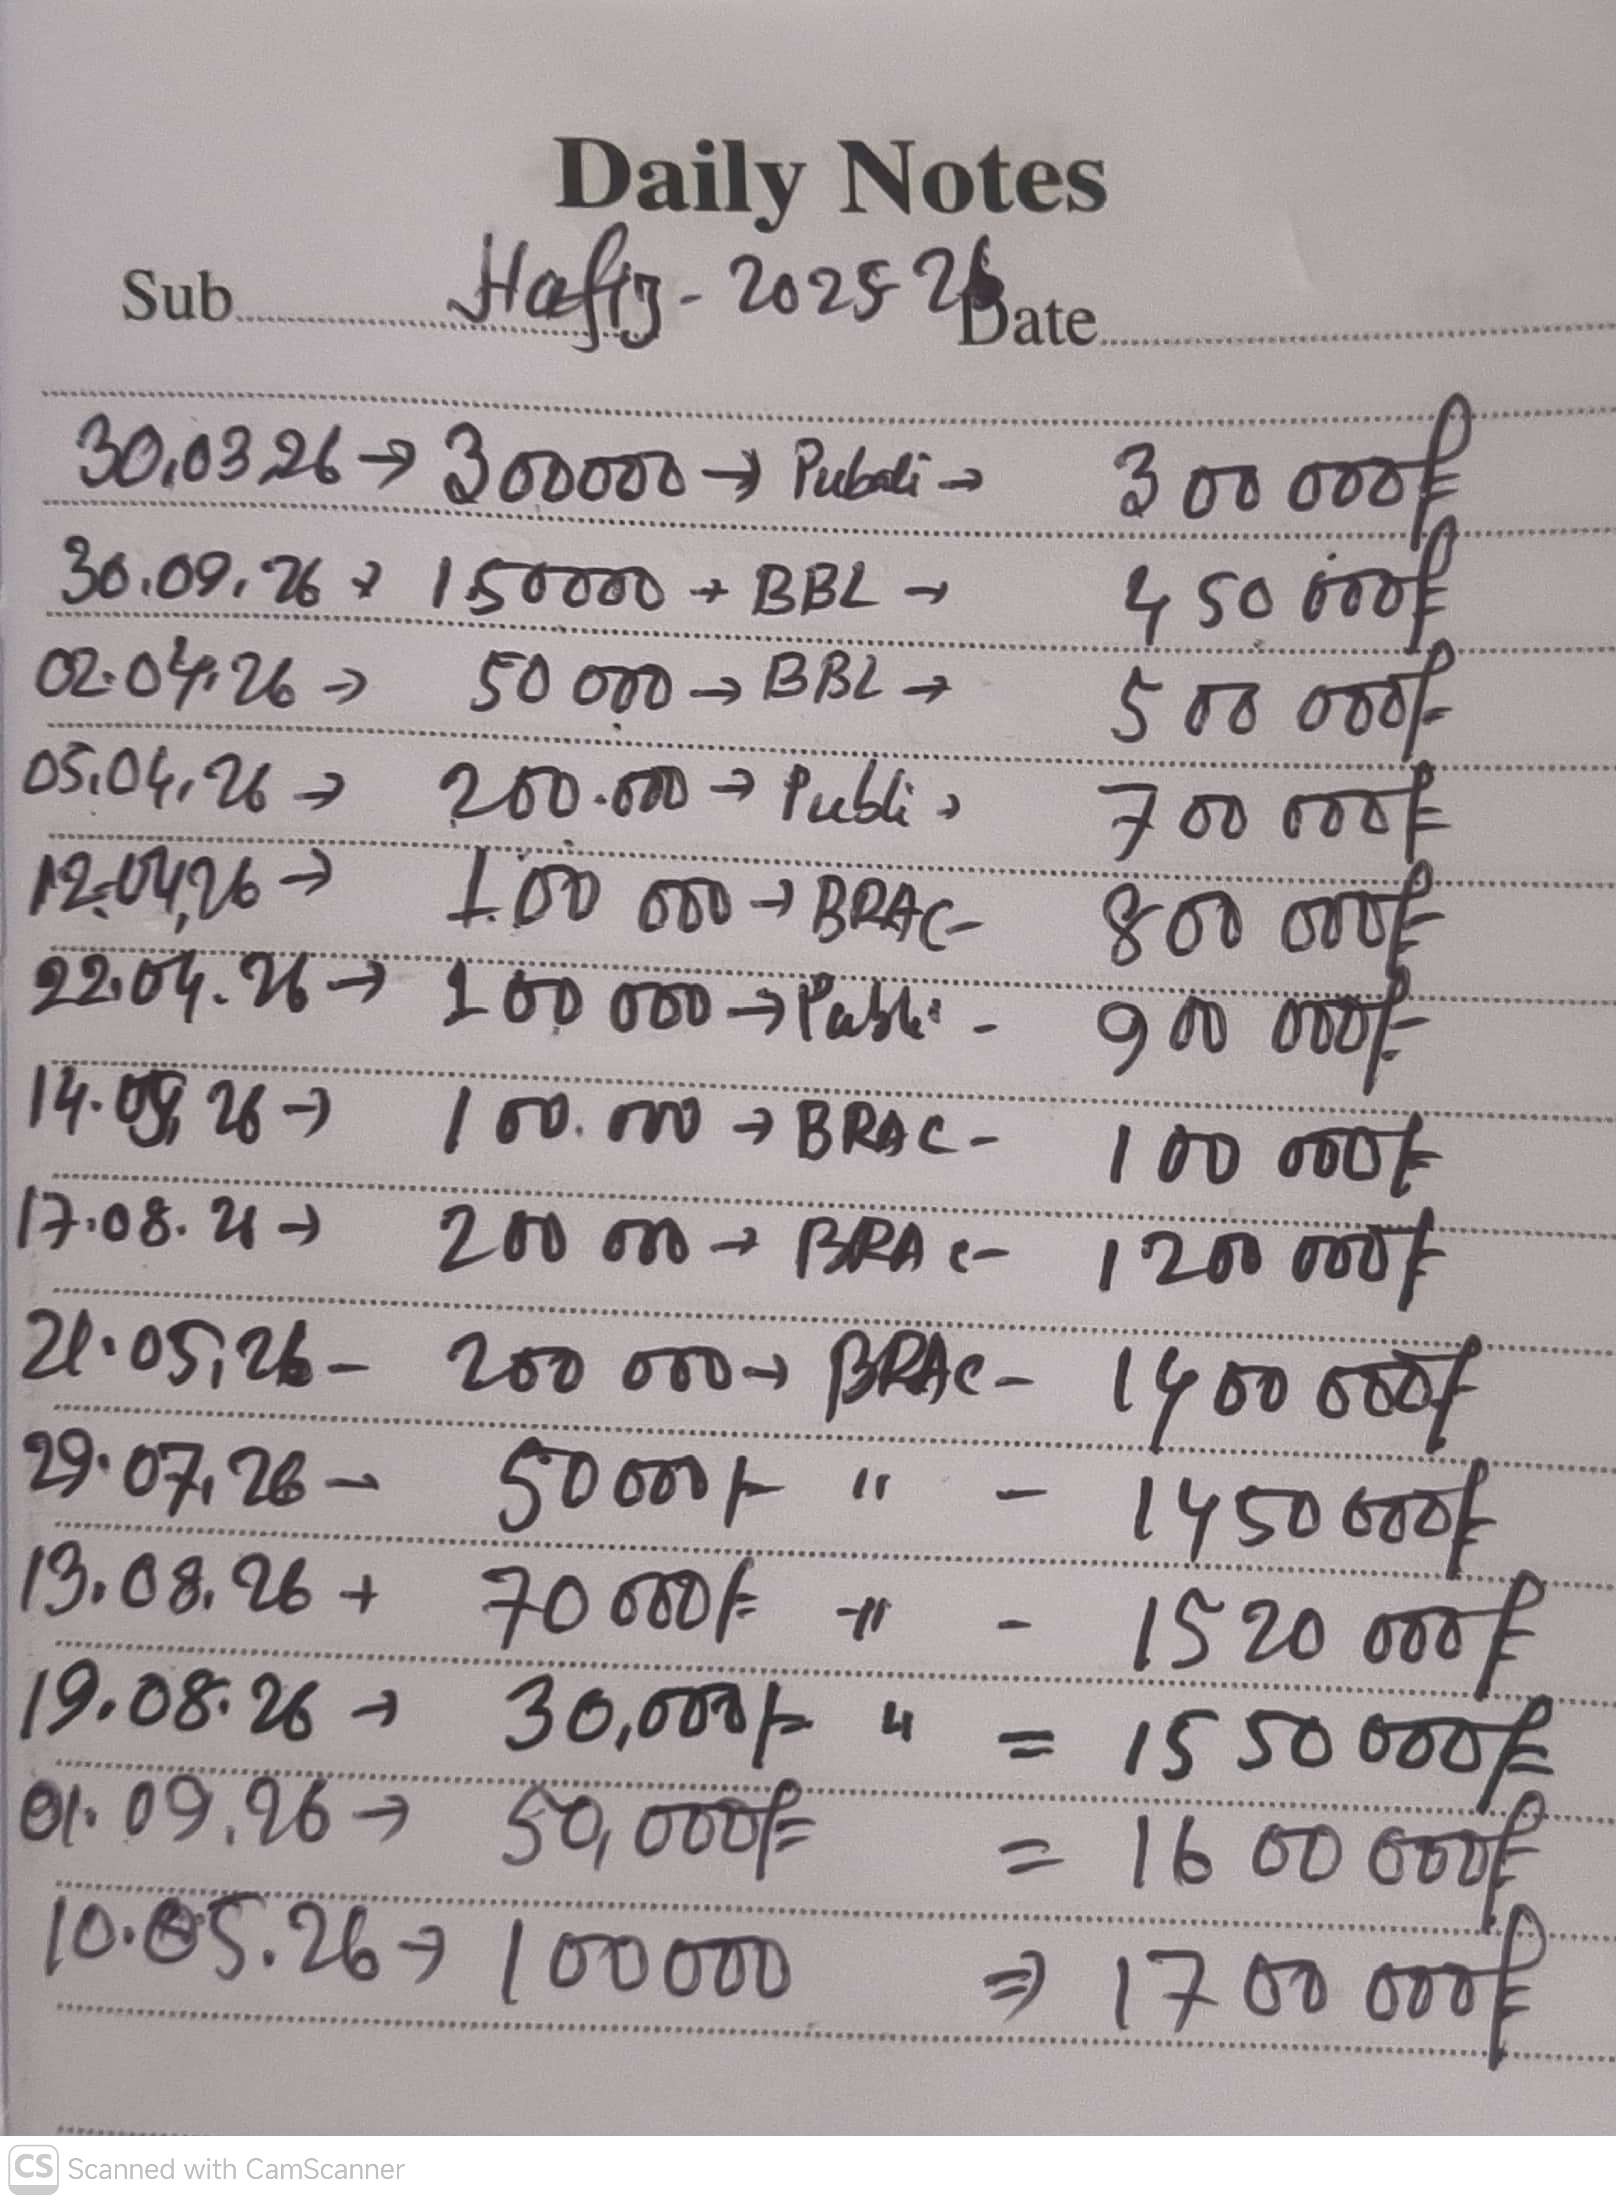 Daily Notes
Sub Hafiz - 2025 26 Date
30.03.26 → 300000 → Pubali → 300 000/=
30.09.26 → 150000 → BBL → 450 000/=
02.04.26 → 50 000 → BBL → 500 000/=
05.04.26 → 200.000 → Publi → 700 000/=
12.04.26 → 100 000 → BRAC - 800 000/=
22.04.26 → 100 000 → Publi - 900 000/=
14. 26 → 100.000 → BRAC - 100 000/=
17.08. → 200 000 → BRAC - 1200 000/=
21.05.26 - 200 000 → BRAC - 1400 000/=
29.07.26 - 50 000/= " - 1450 000/=
13.08.26 + 70 000/= -"- 1520 000/=
19.08.26 → 30,000/= " = 1550 000/=
01.09.26 → 50,000/= = 1600 000/=
10.05.26 → 100000 ⇒ 1700 000/=
CS Scanned with CamScanner